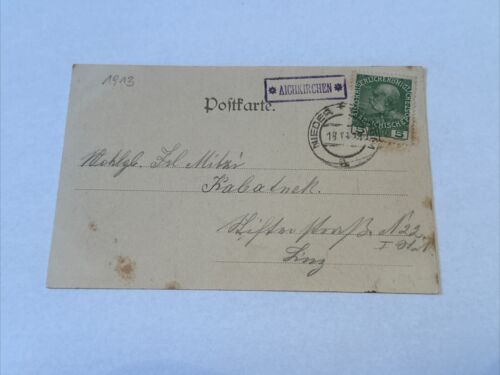 1913
* AICHKIRCHEN *
Postkarte.
NIEDER
18
a
5 5
Wohlgb. Frl Mitzi
Kabatnek.
Stifterstraße N 22.
I St.
Linz